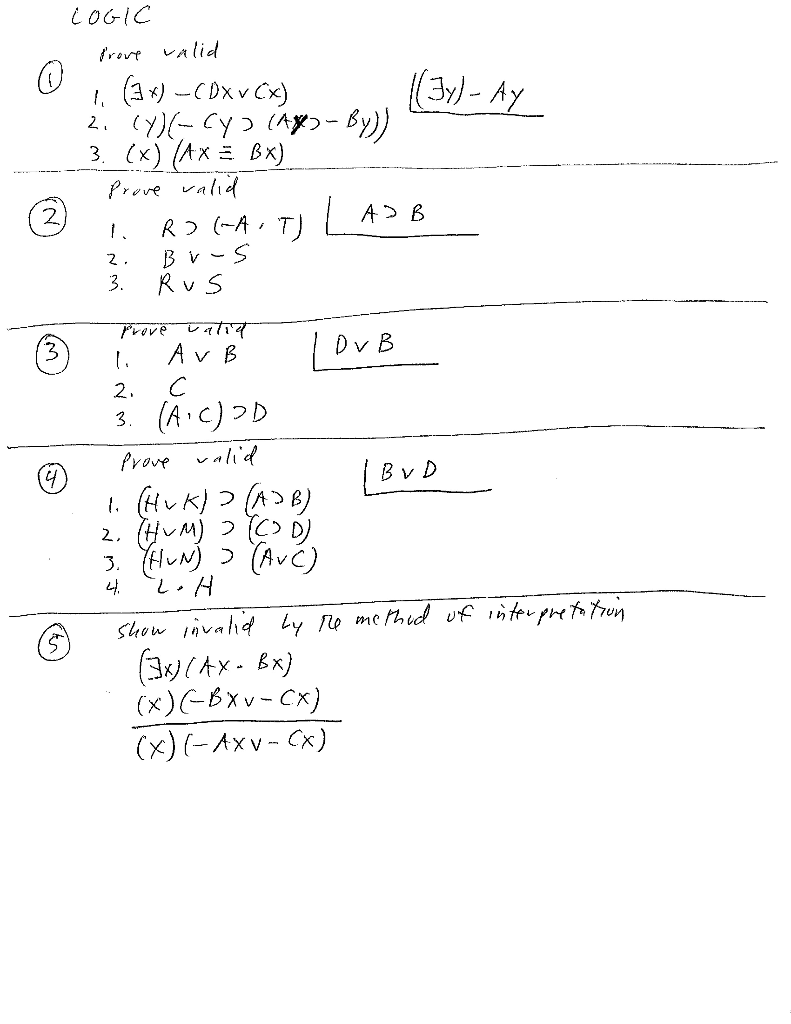 LOGIC
Prove valid
① 1. (∃x) -(Dx v Cx) |(∃y) - Ay
2. (y)(- Cy ⊃ (Ay ⊃ - By))
3. (x) (Ax ≡ Bx)
Prove valid
② 1. R ⊃ (-A · T) | A ⊃ B
2. B v - S
3. R v S
Prove valid
③ 1. A v B | D v B
2. C
3. (A · C) ⊃ D
Prove valid
④ | B v D
1. (H v K) ⊃ (A ⊃ B)
2. (H v M) ⊃ (C ⊃ D)
3. (H v N) ⊃ (A v C)
4. L · H
⑤ Show invalid by the method of interpretation
(∃x)(Ax · Bx)
(x)(-Bx v - Cx)
(x)(- Ax v - Cx)